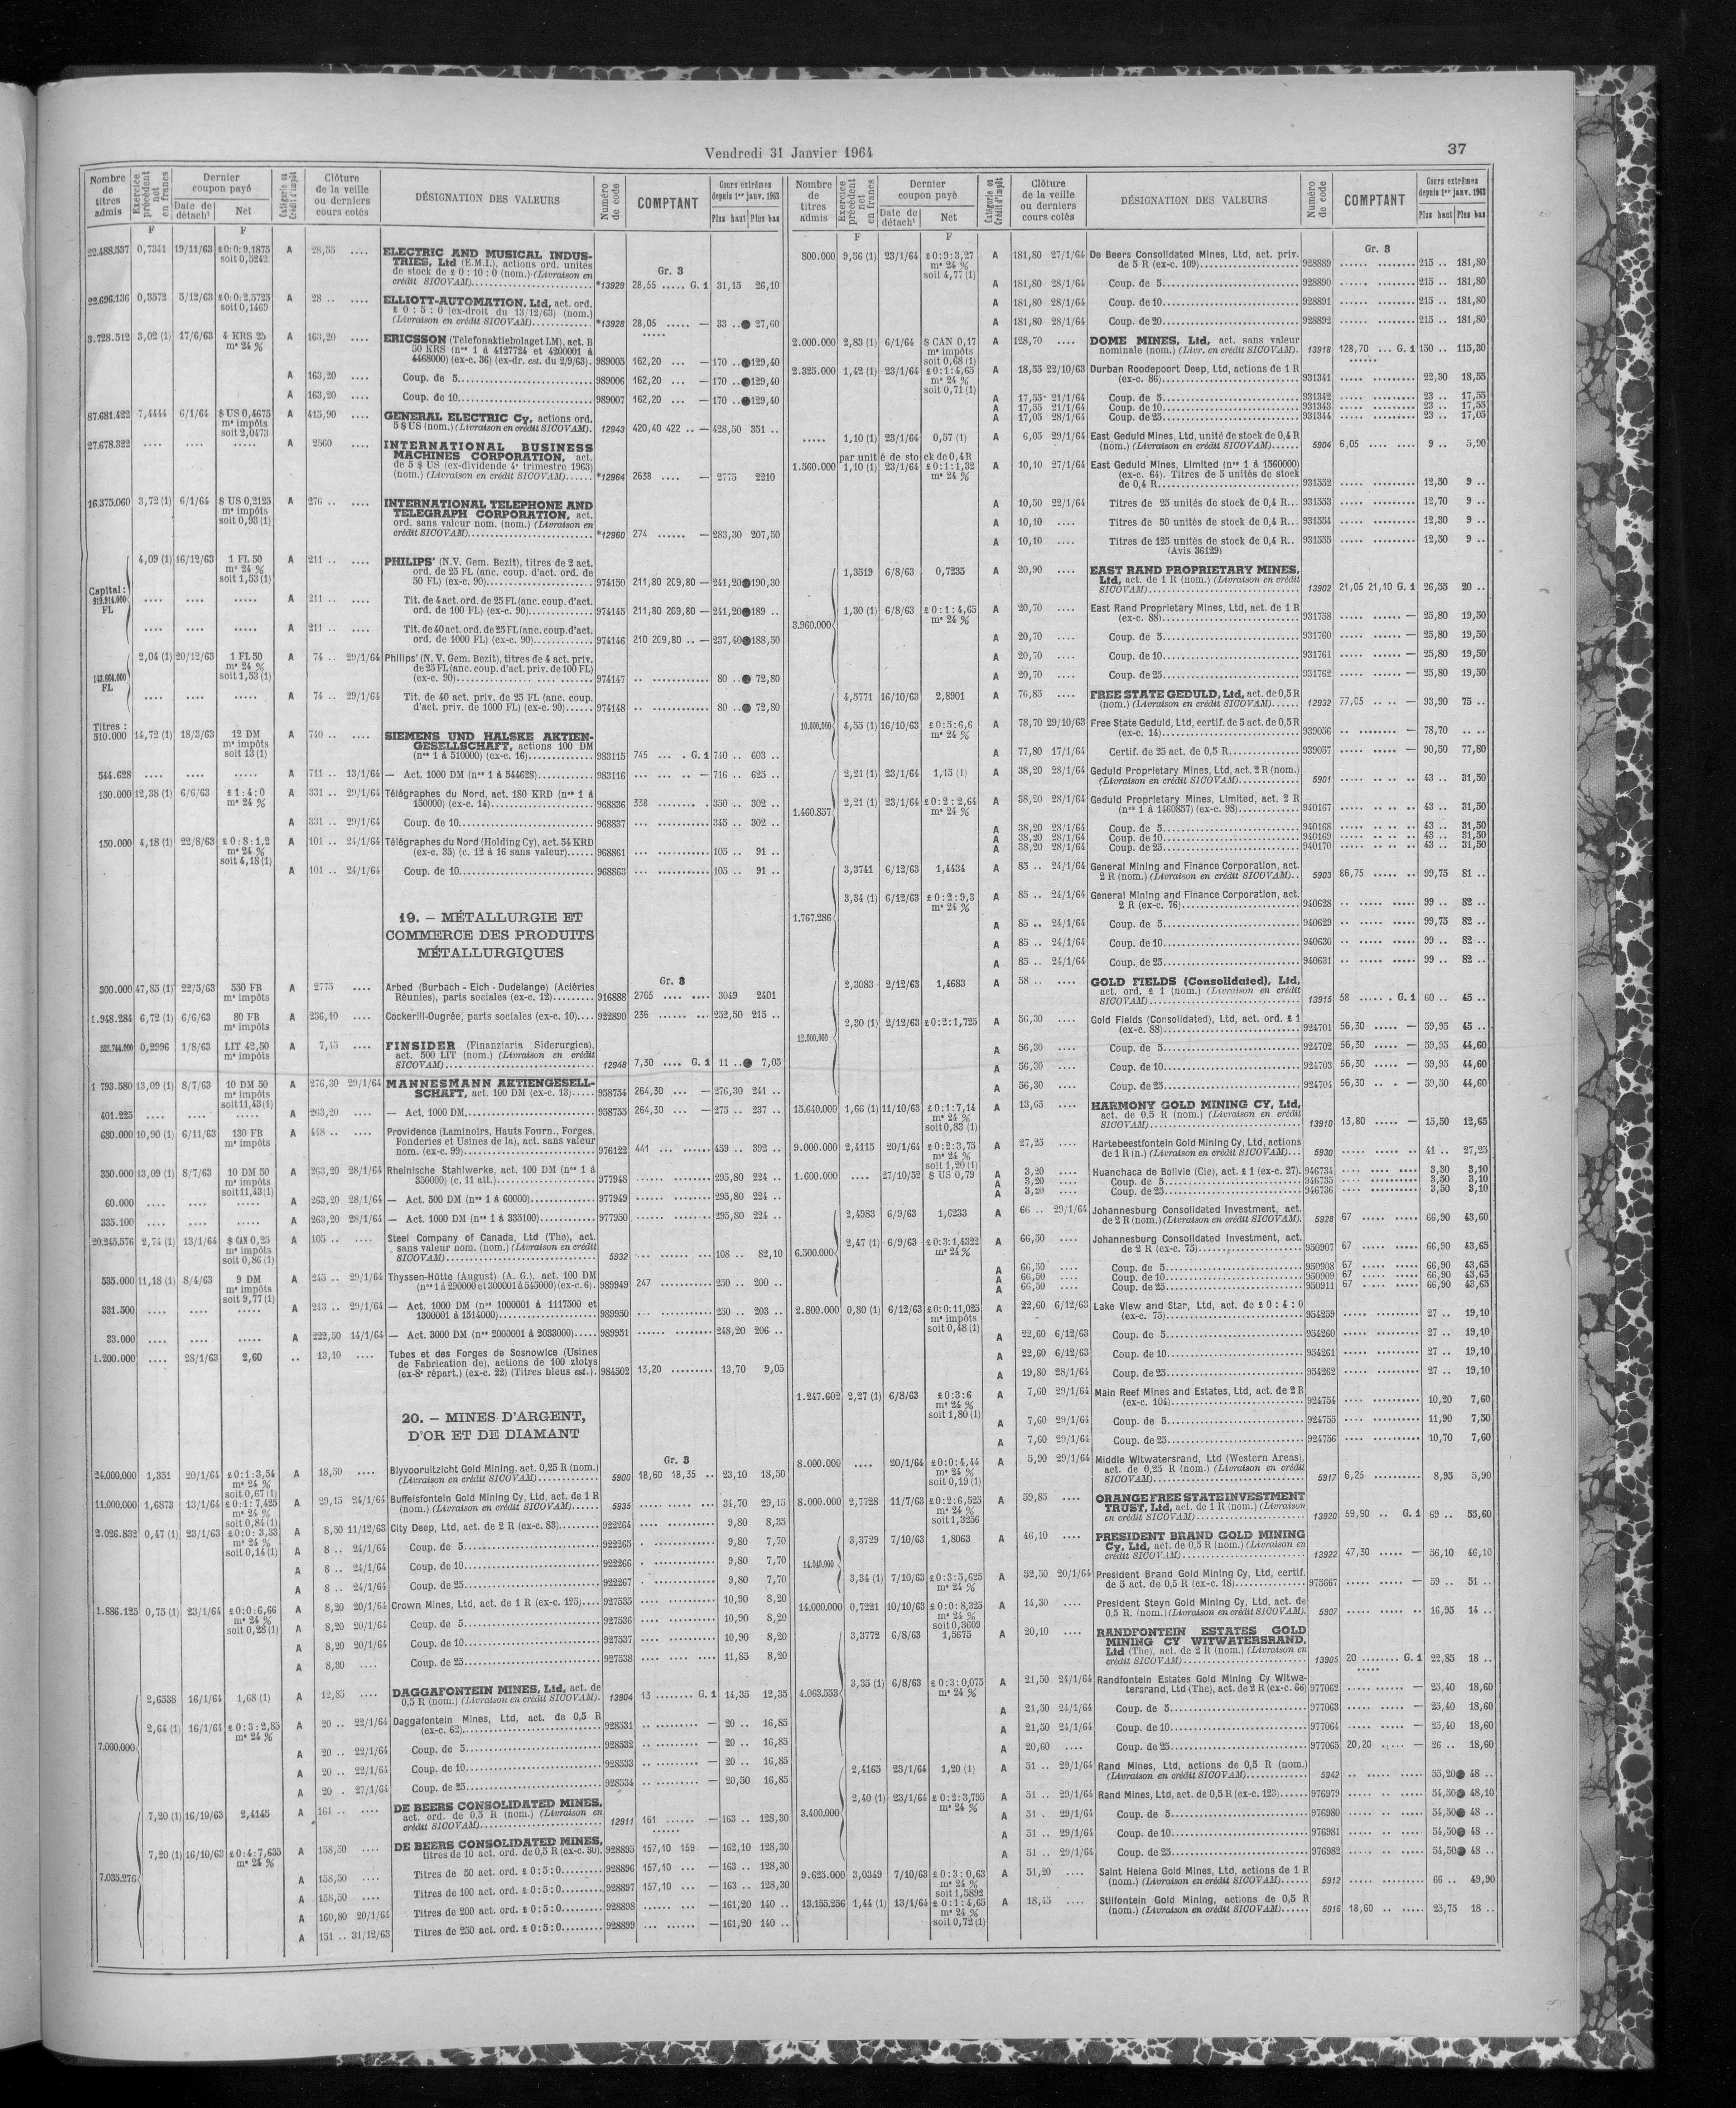 Vendredi 31 Janvier 1964
37
Nombre de titres admis
Exercice précédent net en francs
Dernier coupon payé
Date de détach^t
Net
Catégorie ou Crédit d'impôt
Clôture de la veille ou derniers cours cotés
DÉSIGNATION DES VALEURS
Numéro de code
COMPTANT
Cours extrêmes depuis 1er janv. 1963
Plus haut
Plus bas
F
F
22.488.537 0,7341 19/11/63 £0:0:9,1875 A 28,55 .... ELECTRIC AND MUSICAL INDUS-
soit 0,5242 TRIES, Ltd (E.M.I.), actions ord. unités
de stock de £ 0 : 10 : 0 (nom.) (Livraison en Gr. 3
crédit SICOVAM) *13929 28,55 ..... G. 1 31,15 26,10
22.696.136 0,3572 5/12/63 £0:0:2,5725 A 28 .. .... ELLIOTT-AUTOMATION, Ltd, act. ord.
soit 0,1469 £ 0 : 5 : 0 (ex-droit du 13/12/63) (nom.)
(Livraison en crédit SICOVAM) *13928 28,05 ..... — 33 .. ● 27,60
3.728.512 3,02 (1) 17/6/63 4 KRS 25 A 163,20 .... ERICSSON (Telefonaktiebolaget LM), act. B
m^s 24 % 50 KRS (n^os 1 à 4127724 et 4200001 à
4468000) (ex-c. 36) (ex-dr. est. du 2/9/63) 989005 162,20 ... — 170 .. ● 129,40
A 163,20 .... Coup. de 5 989006 162,20 ... — 170 .. ● 129,40
A 163,20 .... Coup. de 10 989007 162,20 ... — 170 .. ● 129,40
87.681.422 7,4444 6/1/64 $ US 0,4675 A 415,90 .... GENERAL ELECTRIC Cy, actions ord.
m^s impôts 5 $ US (nom.) (Livraison en crédit SICOVAM). 12943 420,40 422 .. — 428,50 351 ..
soit 2,0473
27.678.322 .... .... ..... A 2560 .... INTERNATIONAL BUSINESS
MACHINES CORPORATION, act.
de 5 $ US (ex-dividende 4e trimestre 1963)
(nom.) (Livraison en crédit SICOVAM) *12964 2638 .... — 2775 2210
16.375.060 3,72 (1) 6/1/64 $ US 0,2125 A 276 .. .... INTERNATIONAL TELEPHONE AND
m^s impôts TELEGRAPH CORPORATION, act.
soit 0,93 (1) ord. sans valeur nom. (nom.) (Livraison en
crédit SICOVAM) *12960 274 ...... — 283,30 207,50
4,09 (1) 16/12/63 1 FL 50 A 211 .. .... PHILIPS' (N.V. Gem. Bezit), titres de 2 act.
m^s 24 % ord. de 25 FL (anc. coup. d'act. ord. de
soit 1,53 (1) 50 FL) (ex-c. 90) 974150 211,80 209,80 — 241,20 ● 190,30
Capital :
FL
.... .... ..... A 211 .. .... Tit. de 4 act. ord. de 25 FL (anc. coup. d'act.
ord. de 100 FL) (ex-c. 90) 974145 211,80 209,80 — 241,20 ● 189 ..
.... .... ..... A 211 .. .... Tit. de 40 act. ord. de 25 FL (anc. coup. d'act.
ord. de 1000 FL) (ex-c. 90) 974146 210 209,80 .. — 237,40 ● 188,50
2,04 (1) 20/12/63 1 FL 50 A 74 .. 29/1/64 Philips' (N. V. Gem. Bezit), titres de 4 act. priv.
m^s 24 % de 25 FL (anc. coup. d'act. priv. de 100 FL)
soit 1,53 (1) (ex-c. 90) 974147 .. ............ 80 .. ● 72,80
FL
.... .... ..... A 74 .. 29/1/64 Tit. de 40 act. priv. de 25 FL (anc. coup.
d'act. priv. de 1000 FL) (ex-c. 90) 974148 .. ............ 80 .. ● 72,80
Titres :
510.000 14,72 (1) 18/3/63 12 DM A 740 .. .... SIEMENS UND HALSKE AKTIEN-
m^s impôts GESELLSCHAFT, actions 100 DM
soit 13 (1) (n^os 1 à 510000) (ex-c. 16) 983115 745 ... . G. 1 740 .. 603 ..
544.628 .... .... ..... A 711 .. 13/1/64 — Act. 1000 DM (n^os 1 à 544628) 983116 ... ..... — 716 .. 625 ..
150.000 12,38 (1) 6/6/63 £ 1 : 4 : 0 A 331 .. 29/1/64 Télégraphes du Nord, act. 180 KRD (n^os 1 à
m^s 24 % 150000) (ex-c. 14) 968836 338 .......... 350 .. 302 ..
A 331 .. 29/1/64 Coup. de 10 968837 ... .......... 345 .. 302 ..
150.000 4,18 (1) 22/8/63 £ 0 : 8 : 1,2 A 101 .. 24/1/64 Télégraphes du Nord (Holding Cy), act. 54 KRD
m^s 24 % (ex-c. 35) (c. 12 à 16 sans valeur) 968861 ... .......... 105 .. 91 ..
soit 4,18 (1)
A 101 .. 24/1/64 Coup. de 10 968863 ... .......... 105 .. 91 ..
19. — MÉTALLURGIE ET
COMMERCE DES PRODUITS
MÉTALLURGIQUES
Gr. 3
300.000 47,85 (1) 22/5/63 550 FB A 2775 .... Arbed (Burbach - Eich - Dudelange) (Aciéries
m^s impôts Réunies), parts sociales (ex-c. 12) 916888 2765 .... .... 3049 2401
1.948.284 6,72 (1) 6/6/63 80 FB A 236,10 .... Cockerill-Ougrée, parts sociales (ex-c. 10) 922890 236 ...... ... 252,50 215 ..
m^s impôts
0,2996 1/8/63 LIT 42,50 A 7,15 .... FINSIDER (Finanziaria Siderurgica),
m^s impôts act. 500 LIT (nom.) (Livraison en crédit
SICOVAM) 12948 7,30 .... G. 1 11 .. ● 7,05
1 793.580 13,09 (1) 8/7/63 10 DM 50 A 276,30 29/1/64 MANNESMANN AKTIENGESELL-
m^s impôts SCHAFT, act. 100 DM (ex-c. 13) 958754 264,30 ... — 276,30 241 ..
soit 11,43 (1)
401.225 .... .... ..... A 263,20 .... — Act. 1000 DM 958755 264,30 ... — 275 .. 237 ..
680.000 10,90 (1) 6/11/63 130 FB A 448 .. .... Providence (Laminoirs, Hauts Fourn., Forges,
m^s impôts Fonderies et Usines de la), act. sans valeur
nom. (ex-c. 99) 976122 441 ... ...... 459 .. 392 ..
350.000 13,09 (1) 8/7/63 10 DM 50 A 263,20 28/1/64 Rheinische Stahlwerke, act. 100 DM (n^os 1 à
m^s impôts 350000) (c. 11 att.) 977948 ...... ......... 295,80 224 ..
soit 11,43 (1)
60.000 .... .... ..... A 263,20 28/1/64 — Act. 500 DM (n^os 1 à 60000) 977949 ...... ......... 295,80 224 ..
335.100 .... .... ..... A 263,20 28/1/64 — Act. 1000 DM (n^os 1 à 335100) 977950 ...... ......... 295,80 224 ..
20.245.576 2,74 (1) 13/1/64 $ CAN 0,25 A 105 .. .... Steel Company of Canada, Ltd (The), act.
m^s impôts sans valeur nom. (nom.) (Livraison en crédit
soit 0,86 (1) SICOVAM) 5932 ... ...... ... 108 .. 82,10
535.000 11,18 (1) 8/4/63 9 DM A 245 .. 29/1/64 Thyssen-Hütte (August) (A. G.), act. 100 DM
m^s impôts (n^os 1 à 290000 et 300001 à 545000) (ex-c. 6) 989949 247 .......... 250 .. 200 ..
soit 9,77 (1)
331.500 .... .... ..... A 243 .. 29/1/64 — Act. 1000 DM (n^os 1000001 à 1117500 et
1300001 à 1514000) 989950 ... .......... 250 .. 203 ..
33.000 .... .... ..... A 222,50 14/1/64 — Act. 3000 DM (n^os 2000001 à 2033000) 989951 ...... ......... 248,20 206 ..
1.200.000 .... 28/1/63 2,60 .. 13,10 .... Tubes et des Forges de Sosnowice (Usines
de Fabrication de), actions de 100 zlotys
(ex-8e répart.) (ex-c. 22) (Titres bleus est.) 984502 13,20 ......... 13,70 9,05
20. — MINES D'ARGENT,
D'OR ET DE DIAMANT
Gr. 3
24.000.000 1,351 20/1/64 £0:1:3,54 A 18,50 .... Blyvooruitzicht Gold Mining, act. 0,25 R (nom.)
m^s 24 % (Livraison en crédit SICOVAM) 5900 18,60 18,35 .. 23,10 18,50
soit 0,67 (1)
11.000.000 1,6873 13/1/64 £0:1:7,425 A 29,15 24/1/64 Buffelsfontein Gold Mining Cy, Ltd, act. de 1 R
m^s 24 % (nom.) (Livraison en crédit SICOVAM) 5935 ..... ..... ... 34,70 29,15
soit 0,84 (1)
2.026.832 0,47 (1) 23/1/63 £0:0:3,33 A 8,50 11/12/63 City Deep, Ltd, act. de 2 R (ex-c. 83) 922264 .... .......... 9,80 8,35
m^s 24 % A 8 .. 24/1/64 Coup. de 5 922265 . .......... 9,80 7,70
soit 0,14 (1) A 8 .. 24/1/64 Coup. de 10 922266 . .......... 9,80 7,70
A 8 .. 24/1/64 Coup. de 25 922267 . .......... 9,80 7,70
1.886.125 0,75 (1) 23/1/64 £0:0:6,66 A 8,20 20/1/64 Crown Mines, Ltd, act. de 1 R (ex-c. 125) 927535 .... .......... 10,90 8,20
m^s 24 % A 8,20 20/1/64 Coup. de 5 927536 .... .......... 10,90 8,20
soit 0,28 (1) A 8,20 20/1/64 Coup. de 10 927537 .... .......... 10,90 8,20
A 8,30 .... Coup. de 25 927538 .... .......... 11,85 8,20
2,6338 16/1/64 1,68 (1) A 12,85 .... DAGGAFONTEIN MINES, Ltd, act. de
0,5 R (nom.) (Livraison en crédit SICOVAM). 13904 13 ........ G. 1 14,35 12,35
2,64 (1) 16/1/64 £0:3:2,85 A 20 .. 22/1/64 Daggafontein Mines, Ltd, act. de 0,5 R
m^s 24 % (ex-c. 62) 928531 .. ......... — 20 .. 16,85
7.000.000
A 20 .. 22/1/64 Coup. de 5 928532 .. ......... — 20 .. 16,85
A 20 .. 22/1/64 Coup. de 10 928533 .. ......... — 20 .. 16,85
A 20 .. 27/1/64 Coup. de 25 928534 .. ......... — 20,50 16,85
7,20 (1) 16/10/63 2,4145 A 161 .. .... DE BEERS CONSOLIDATED MINES,
act. ord. de 0,5 R (nom.) (Livraison en
crédit SICOVAM) 12911 161 ...... — 163 .. 128,30
7,20 (1) 16/10/63 £0:4:7,635 A 158,50 .... DE BEERS CONSOLIDATED MINES,
m^s 24 % titres de 10 act. ord. de 0,5 R (ex-c. 30) 928895 157,10 159 — 162,10 128,30
7.035.276
A 158,50 .... Titres de 50 act. ord. £ 0 : 5 : 0 928896 157,10 ... — 163 .. 128,30
A 158,50 .... Titres de 100 act. ord. £ 0 : 5 : 0 928897 157,10 ... — 163 .. 128,30
A 160,80 20/1/64 Titres de 200 act. ord. £ 0 : 5 : 0 928898 ...... ...... — 161,20 140 ..
A 151 .. 31/12/63 Titres de 250 act. ord. £ 0 : 5 : 0 928899 ... ...... — 161,20 140 ..
Nombre de titres admis
Exercice précédent net en francs
Dernier coupon payé
Date de détach^t
Net
Catégorie ou Crédit d'impôt
Clôture de la veille ou derniers cours cotés
DÉSIGNATION DES VALEURS
Numéro de code
COMPTANT
Cours extrêmes depuis 1er janv. 1963
Plus haut
Plus bas
F
F
Gr. 3
800.000 9,56 (1) 23/1/64 £0:9:3,27 A 181,80 27/1/64 De Beers Consolidated Mines, Ltd, act. priv.
m^s 24 % de 5 R (ex-c. 109) 928889 ...... ......... 215 .. 181,80
soit 4,77 (1)
A 181,80 28/1/64 Coup. de 5 928890 ...... ......... 215 .. 181,80
A 181,80 28/1/64 Coup. de 10 928891 ...... ......... 215 .. 181,80
A 181,80 28/1/64 Coup. de 20 928892 ...... ......... 215 .. 181,80
2.000.000 2,83 (1) 6/1/64 $ CAN 0,17 A 128,70 .... DOME MINES, Ltd, act. sans valeur
m^s impôts nominale (nom.) (Livr. en crédit SICOVAM). 13918 128,70 ... G. 1 150 .. 115,30
soit 0,68 (1)
2.325.000 1,42 (1) 23/1/64 £0:1:4,65 A 18,55 22/10/63 Durban Roodepoort Deep, Ltd, actions de 1 R
m^s 24 % (ex-c. 86) 931341 ..... ......... 22,30 18,55
soit 0,71 (1)
A 17,55 21/1/64 Coup. de 5 931342 ..... ......... 23 .. 17,55
A 17,55 21/1/64 Coup. de 10 931343 ..... ......... 23 .. 17,55
A 17,05 28/1/64 Coup. de 25 931344 ..... ......... 23 .. 17,05
..... 1,10 (1) 23/1/64 0,57 (1) A 6,05 29/1/64 East Geduld Mines, Ltd, unité de stock de 0,4 R
(nom.) (Livraison en crédit SICOVAM) 5904 6,05 .... .... 9 .. 5,90
par unité de stock de 0,4 R
1.560.000 1,10 (1) 23/1/64 £0:1:1,32 A 10,10 27/1/64 East Geduld Mines, Limited (n^os 1 à 1560000)
m^s 24 % (ex-c. 64). Titres de 5 unités de stock
de 0,4 R 931552 ..... ......... 12,50 9 ..
A 10,50 22/1/64 Titres de 25 unités de stock de 0,4 R 931553 ..... ......... 12,70 9 ..
A 10,10 .... Titres de 50 unités de stock de 0,4 R 931554 ..... ......... 12,30 9 ..
A 10,10 .... Titres de 125 unités de stock de 0,4 R 931555 ..... ......... 12,50 9 ..
(Avis 36129)
1,3519 6/8/63 0,7235 A 20,90 .... EAST RAND PROPRIETARY MINES,
Ltd, act. de 1 R (nom.) (Livraison en crédit
SICOVAM) 13902 21,05 21,10 G. 1 26,55 20 ..
1,30 (1) 6/8/63 £0:1:4,65 A 20,70 .... East Rand Proprietary Mines, Ltd, act. de 1 R
m^s 24 % (ex-c. 88) 931758 ..... ...... — 25,80 19,50
3.960.000
A 20,70 .... Coup. de 5 931760 ..... ...... — 25,80 19,50
A 20,70 .... Coup. de 10 931761 ..... ...... — 25,80 19,50
A 20,70 .... Coup. de 25 931762 ..... ...... — 25,80 19,50
4,5771 16/10/63 2,8901 A 76,85 .... FREE STATE GEDULD, Ltd, act. de 0,5 R
(nom.) (Livraison en crédit SICOVAM) 12932 77,05 .. ... — 93,90 75 ..
10.000.000 4,55 (1) 16/10/63 £0:5:6,6 A 78,70 29/10/63 Free State Geduld, Ltd, certif. de 5 act. de 0,5 R
m^s 24 % (ex-c. 14) 939056 .. ........ — 78,70 .. ..
A 77,80 17/1/64 Certif. de 25 act. de 0,5 R 939057 ..... ..... — 90,50 77,80
2,21 (1) 23/1/64 1,15 (1) A 38,20 28/1/64 Geduld Proprietary Mines, Ltd, act. 2 R (nom.)
(Livraison en crédit SICOVAM) 5901 ..... .. .. .. 43 .. 31,50
2,21 (1) 23/1/64 £0:2:2,64 A 38,20 28/1/64 Geduld Proprietary Mines, Limited, act. 2 R
m^s 24 % (n^os 1 à 1460857) (ex-c. 98) 940167 ..... .. .. .. 43 .. 31,50
1.460.857
A 38,20 28/1/64 Coup. de 5 940168 ..... .. .. .. 43 .. 31,50
A 38,20 28/1/64 Coup. de 10 940169 ..... .. .. .. 43 .. 31,50
A 38,20 28/1/64 Coup. de 25 940170 ..... .. .. .. 43 .. 31,50
3,3741 6/12/63 1,4434 A 85 .. 24/1/64 General Mining and Finance Corporation, act.
2 R (nom.) (Livraison en crédit SICOVAM) 5903 86,75 ..... .. 99,75 81 ..
3,34 (1) 6/12/63 £0:2:9,3 A 85 .. 24/1/64 General Mining and Finance Corporation, act.
m^s 24 % 2 R (ex-c. 76) 940628 .. ..... ..... 99 .. 82 ..
1.767.286
A 85 .. 24/1/64 Coup. de 5 940629 .. ..... ..... 99,75 82 ..
A 85 .. 24/1/64 Coup. de 10 940630 .. ..... ..... 99 .. 82 ..
A 85 .. 24/1/64 Coup. de 25 940631 .. ..... ..... 99 .. 82 ..
2,3083 2/12/63 1,4683 A 58 .. .... GOLD FIELDS (Consolidated), Ltd,
act. ord. £ 1 (nom.) (Livraison en crédit
SICOVAM) 13915 58 ...... G. 1 60 .. 45 ..
2,30 (1) 2/12/63 £0:2:1,725 A 56,30 .... Gold Fields (Consolidated), Ltd, act. ord. £ 1
(ex-c. 88) 924701 56,30 ..... — 59,95 45 ..
12.000.000
A 56,30 .... Coup. de 5 924702 56,30 ..... — 59,95 44,60
A 56,30 .... Coup. de 10 924703 56,30 ..... — 59,95 44,60
A 56,30 .... Coup. de 25 924704 56,30 .. . — 59,50 44,60
15.640.000 1,66 (1) 11/10/63 £0:1:7,14 A 13,65 .... HARMONY GOLD MINING CY, Ltd,
m^s 24 % act. de 0,5 R (nom.) (Livraison en crédit
soit 0,83 (1) SICOVAM) 13910 13,80 ..... — 15,50 12,65
9.000.000 2,4115 20/1/64 £0:2:3,75 A 27,25 .... Hartebeestfontein Gold Mining Cy, Ltd, actions
m^s 24 % de 1 R (n.) (Livraison en crédit SICOVAM) 5930 ..... ..... .. 41 .. 27,25
soit 1,20 (1)
1.600.000 .... 27/10/52 $ US 0,79 A 3,20 .... Huanchaca de Bolivie (Cie), act. £ 1 (ex-c. 27) 946734 .... .... .... 3,30 3,10
A 3,20 .... Coup. de 5 946735 .... .......... 3,50 3,10
A 3,20 .... Coup. de 25 946736 .... .......... 3,50 3,10
2,4983 6/9/63 1,6233 A 66 .. 29/1/64 Johannesburg Consolidated Investment, act.
de 2 R (nom.) (Livraison en crédit SICOVAM). 5928 67 ..... ..... 66,90 43,60
2,47 (1) 6/9/63 £0:3:1,4322 A 66,50 .... Johannesburg Consolidated Investment, act.
m^s 24 % de 2 R (ex-c. 75) 950907 67 ..... ..... 66,90 43,65
6.500.000
A 66,50 .... Coup. de 5 950908 67 ..... ..... 66,90 43,65
A 66,50 .... Coup. de 10 950909 67 ..... ..... 66,90 43,65
A 66,50 .... Coup. de 25 950911 67 ..... ..... 66,90 43,65
2.800.000 0,80 (1) 6/12/63 £0:0:11,025 A 22,60 6/12/63 Lake View and Star, Ltd, act. de £ 0 : 4 : 0
m^s impôts (ex-c. 75) 954259 ..... ......... 27 .. 19,10
soit 0,48 (1)
A 22,60 6/12/63 Coup. de 5 954260 ..... ......... 27 .. 19,10
A 22,60 6/12/63 Coup. de 10 954261 ..... ......... 27 .. 19,10
A 19,80 28/1/64 Coup. de 25 954262 ..... ......... 27 .. 19,10
1.247.602 2,27 (1) 6/8/63 £0:3:6 A 7,60 29/1/64 Main Reef Mines and Estates, Ltd, act. de 2 R
m^s 24 % (ex-c. 104) 924754 .... .......... 10,20 7,60
soit 1,80 (1)
A 7,60 29/1/64 Coup. de 5 924755 .... .......... 11,90 7,50
A 7,60 29/1/64 Coup. de 25 924756 .... .......... 10,70 7,60
8.000.000 .... 20/1/64 £0:0:4,44 A 5,90 29/1/64 Middle Witwatersrand, Ltd (Western Areas),
m^s 24 % act. de 0,25 R (nom.) (Livraison en crédit
soit 0,19 (1) SICOVAM) 5917 6,25 .... .... 8,95 5,90
8.000.000 2,7728 11/7/63 £0:2:6,525 A 59,85 .... ORANGE FREE STATE INVESTMENT
m^s 24 % TRUST, Ltd, act. de 1 R (nom.) (Livraison
soit 1,3256 en crédit SICOVAM) 13920 59,90 .. G. 1 69 .. 55,60
3,3729 7/10/63 1,8063 A 46,10 .... PRESIDENT BRAND GOLD MINING
Cy, Ltd, act. de 0,5 R (nom.) (Livraison en
crédit SICOVAM) 13922 47,30 ..... — 56,10 46,10
14.040.000
3,34 (1) 7/10/63 £0:3:5,625 A 52,50 20/1/64 President Brand Gold Mining Cy, Ltd, certif.
m^s 24 % de 5 act. de 0,5 R (ex-c. 18) 975667 ..... ..... — 59 .. 51 ..
14.000.000 0,7221 10/10/63 £0:0:8,325 A 14,30 .... President Steyn Gold Mining Cy, Ltd, act. de
m^s 24 % 0,5 R. (nom.) (Livraison en crédit SICOVAM). 5907 ..... ..... .. 16,95 14 ..
soit 0,3609
3,3772 6/8/63 1,5675 A 20,10 .... RANDFONTEIN ESTATES GOLD
MINING CY WITWATERSRAND,
Ltd (The), act. de 2 R (nom.) (Livraison en
crédit SICOVAM) 13905 20 ........ G. 1 22,85 18 ..
3,35 (1) 6/8/63 £0:3:0,075 A 21,50 24/1/64 Randfontein Estates Gold Mining Cy Witwa-
4.063.553 m^s 24 % tersrand, Ltd (The), act. de 2 R (ex-c. 66) 977062 ..... ..... — 25,40 18,60
A 21,50 24/1/64 Coup. de 5 977063 ..... ..... — 25,40 18,60
A 21,50 24/1/64 Coup. de 10 977064 ..... ..... — 25,40 18,60
A 20,60 .... Coup. de 25 977065 20,20 ..... — 26 .. 18,60
2,4165 23/1/64 1,20 (1) A 51 .. 29/1/64 Rand Mines, Ltd, actions de 0,5 R (nom.)
(Livraison en crédit SICOVAM) 5942 .. ..... ..... 55,20 ● 48 ..
2,40 (1) 23/1/64 £0:2:3,795 A 51 .. 29/1/64 Rand Mines, Ltd, act. de 0,5 R (ex-c. 123) 976979 .. ..... ..... 54,50 ● 48,10
3.400.000 m^s 24 % A 51 .. 29/1/64 Coup. de 5 976980 .. ..... ..... 54,50 ● 48 ..
A 51 .. 29/1/64 Coup. de 10 976981 .. ..... ..... 54,50 ● 48 ..
A 51 .. 29/1/64 Coup. de 25 976982 .. ..... ..... 54,50 ● 48 ..
9.625.000 3,0349 7/10/63 £0:3:0,63 A 51,20 .... Saint Helena Gold Mines, Ltd, actions de 1 R
m^s 24 % (nom.) (Livraison en crédit SICOVAM) 5912 ..... ..... 66 .. 49,90
soit 1,5892
13.155.256 1,44 (1) 13/1/64 £0:1:4,65 A 18,45 .... Stilfontein Gold Mining, actions de 0,5 R
m^s 24 % (nom.) (Livraison en crédit SICOVAM) 5916 18,60 .. ..... 25,75 18 ..
soit 0,72 (1)